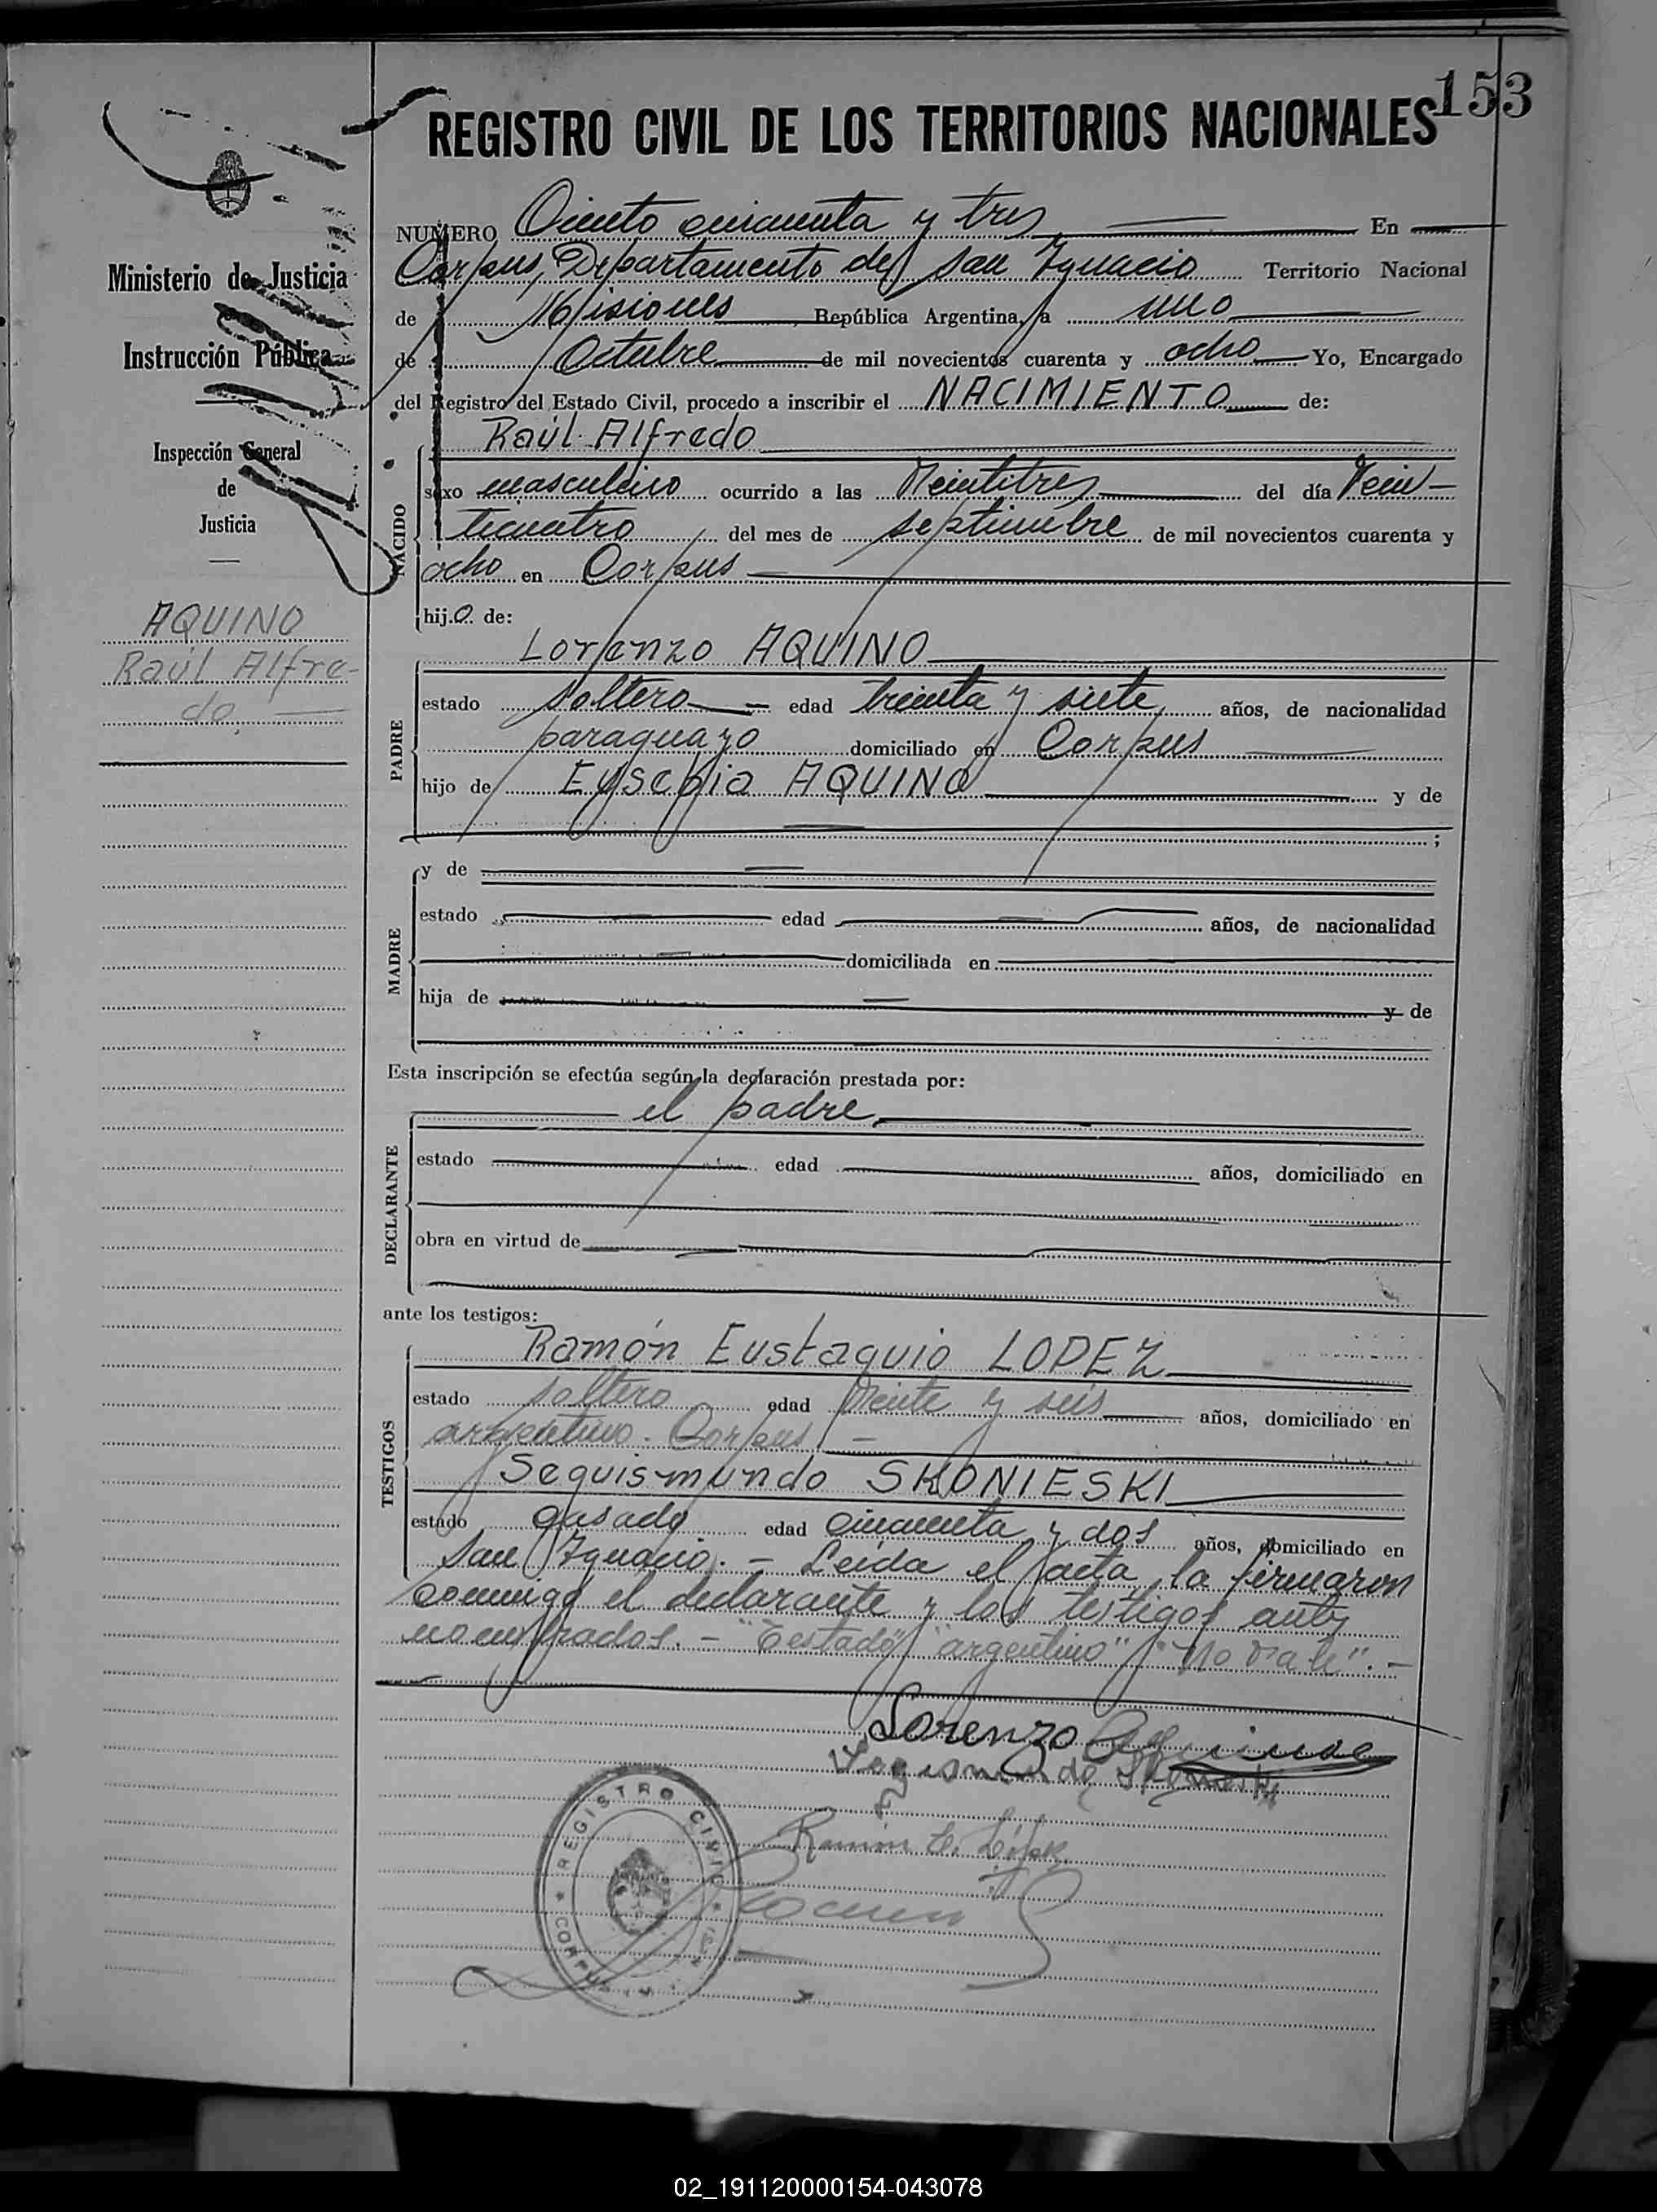 153
REGISTRO CIVIL DE LOS TERRITORIOS NACIONALES
Ministerio de Justicia
Instrucción Pública
Inspección General
de
Justicia
AQUINO
Raúl Alfre-
do,
NUMERO Ciento cincuenta y tres En
Corpus, Departamento de San Ignacio Territorio Nacional
de Misiones República Argentina, a uno
de Octubre de mil novecientos cuarenta y ocho Yo, Encargado
del Registro del Estado Civil, procedo a inscribir el NACIMIENTO de:
NACIDO
Raúl Alfredo
sexo masculino ocurrido a las Veintitres del día Vein-
ticuatro del mes de septiembre de mil novecientos cuarenta y
ocho en Corpus
hijo de:
PADRE
Lorenzo AQUINO
estado soltero edad treinta y siete años, de nacionalidad
paraguayo domiciliado en Corpus
hijo de Eusebia AQUINO y de
;
MADRE
y de
estado edad años, de nacionalidad
domiciliada en
hija de y de
Esta inscripción se efectúa según la declaración prestada por:
DECLARANTE
el padre
estado edad años, domiciliado en
obra en virtud de
ante los testigos:
TESTIGOS
Ramón Eustaquio LOPEZ
estado soltero edad Veinte y seis años, domiciliado en
argentino. Corpus. -
Seguismundo SKONIESKI
estado casado edad cincuenta y dos años, domiciliado en
San Ignacio. - Leída el acta, la firmaron
conmigo el declarante y los testigos antes
nombrados. - "Testado" "argentino" "No vale". -
Lorenzo Aquino
Ramón E. López
REGISTRO CIVIL
CORPUS
02_191120000154-043078